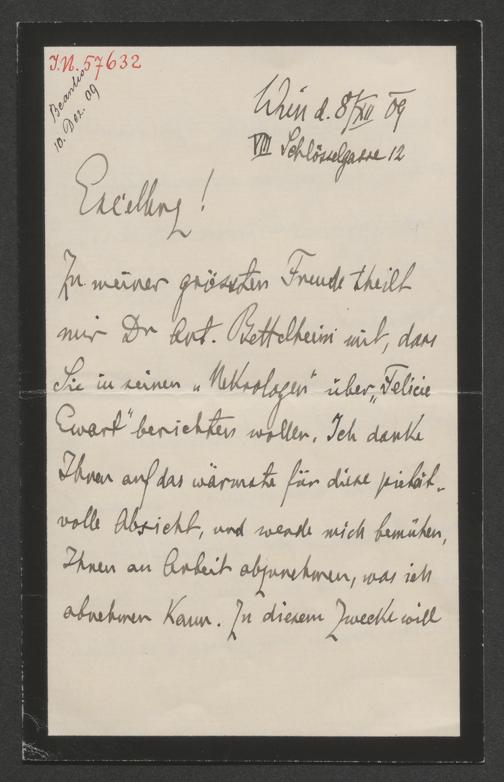 I.N. 57632
Beantw.
10. Dez. 09
Wien d. 8/XII 09
VIII Schlösselgasse 12
Excellenz!
Zu meiner grössten Freude theilt
mir Dr Ant. Bettelheim mit, dass
Sie in seinen „Nekrologen" über „Felicie
Ewart" berichten wollen. Ich danke
Ihnen auf das wärmste für diese pietät-
volle Absicht, und werde mich bemühen,
Ihnen an Arbeit abzunehmen, was ich
abnehmen kann. Zu diesem Zwecke will